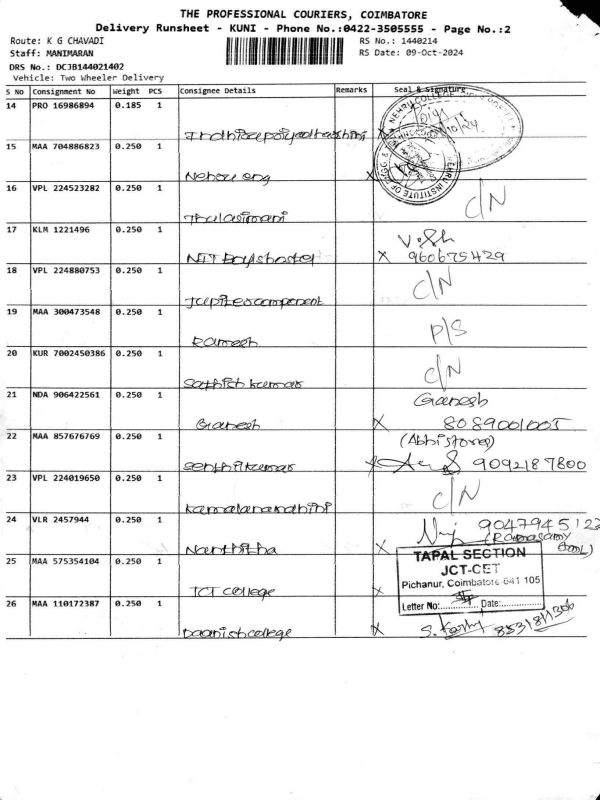 THE PROFESSIONAL COURIERS, COIMBATORE
Delivery Runsheet - KUNI - Phone No.:0422-3505555 - Page No.:2
Route: K G CHAVADI
Staff: MANIMARAN
DRS No.: DCJB144021402
Vehicle: Two Wheeler Delivery
RS No.: 1440214
RS Date: 09-Oct-2024
S No Consignment No Weight PCS Consignee Details Remarks Seal & Signature
14 PRO 16986894 0.185 1
15 MAA 704886823 0.250 1 Nehru eng
16 VPL 224523282 0.250 1 Thulasimani C/N
17 KLM 1221496 0.250 1 NIT Boys hostel X 960675429
18 VPL 224880753 0.250 1 Jupiter component C/N
19 MAA 300473548 0.250 1 Ramesh P/S
20 KUR 7002450386 0.250 1 Sathish kumar C/N
21 NDA 906422561 0.250 1 Ganesh X Ganesh 8089001005
22 MAA 857676769 0.250 1 Senthilkumar X (Abhi stores) 9092187800
23 VPL 224019650 0.250 1 Kamalanandhini C/N
24 VLR 2457944 0.250 1 Nanthitha X
25 MAA 575354104 0.250 1 JCT college X
TAPAL SECTION
JCT-CET
Pichanur, Coimbatore 641 105
Letter No:............ Date:............
26 MAA 110172387 0.250 1 Daanish college X